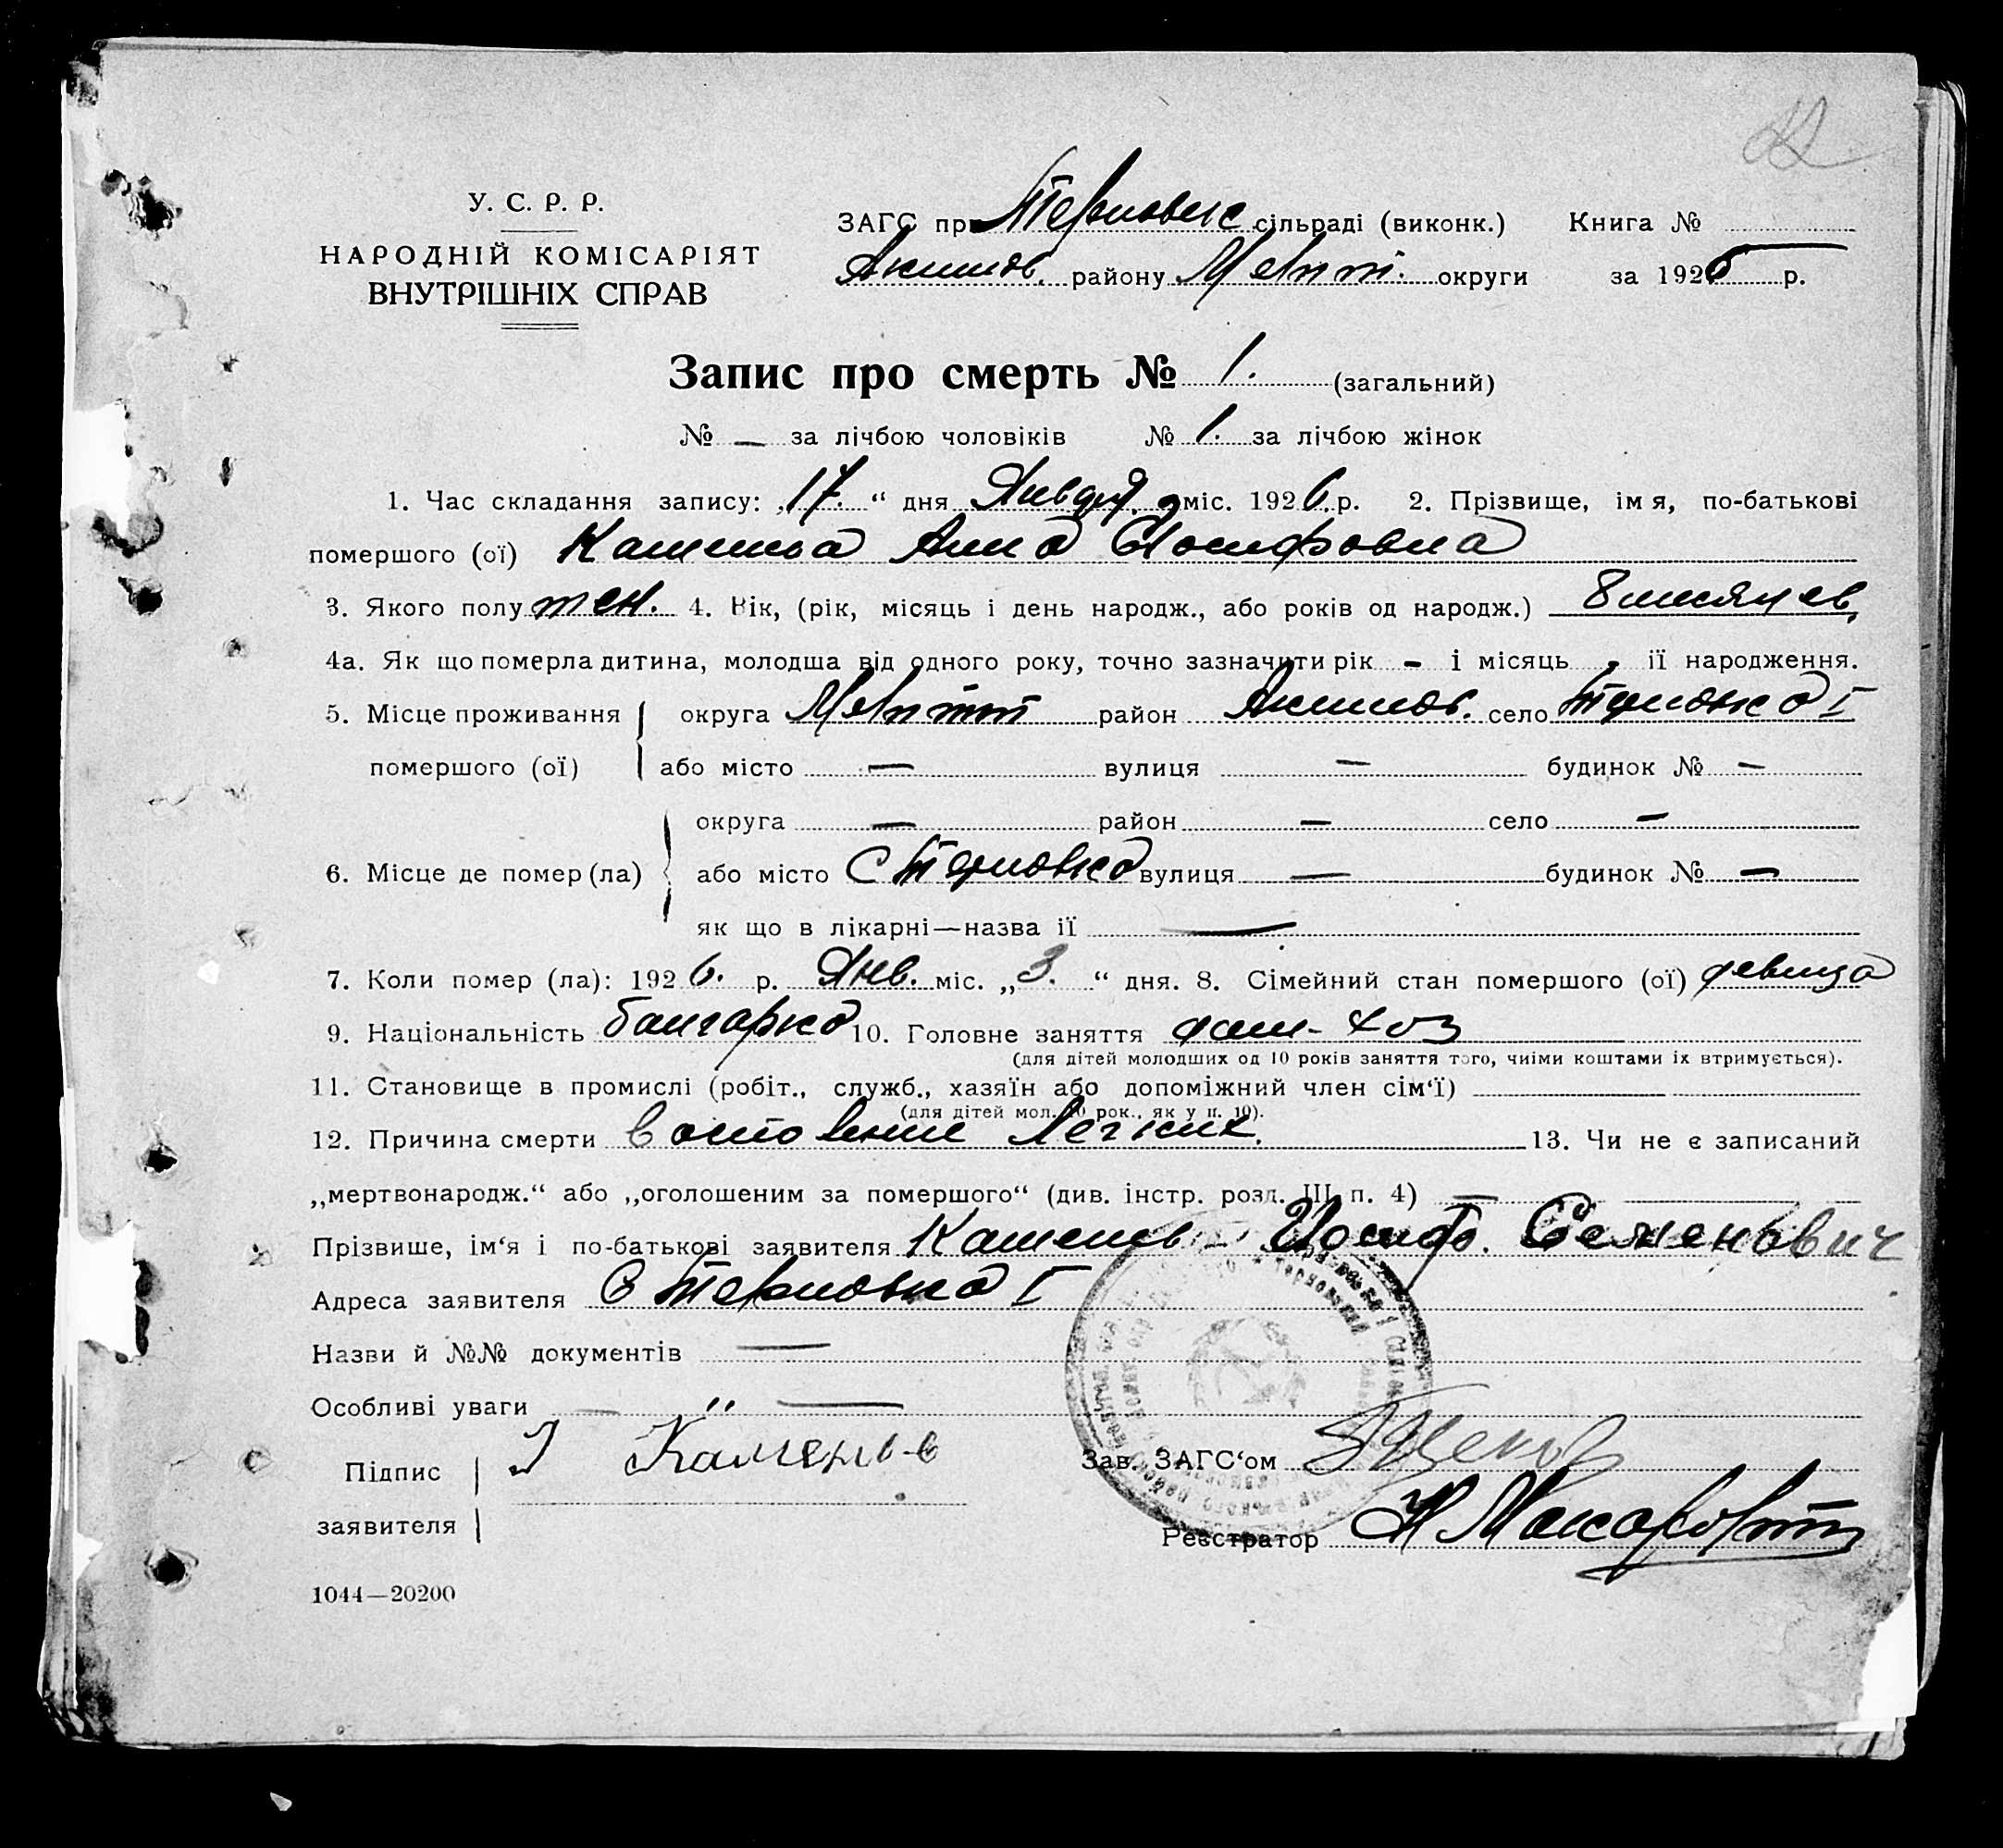 У. С. Р. Р.
НАРОДНІЙ КОМІСАРІЯТ
ВНУТРІШНІХ СПРАВ
ЗАГС при Терновке сільраді (виконк.) Книга №
Акимов. району Меліт. округи за 1926 р.
Запис про смерть № 1. (загальний)
№ — за лічбою чоловіків № 1. за лічбою жінок
1. Час складання запису: „17.“ дня Января міс. 1926. р. 2. Прізвище, імя, по-батькові
помершого (ої) Анна Иосифовна
3. Якого полу жен. 4. Вік, (рік, місяць і день народж., або років од народж.) 8 месяцев
4а. Як що померла дитина, молодша від одного року, точно зазначити рік - і місяць - її народження.
5. Місце проживання округа район Акимов. село Терновка I
помершого (ої) або місто — вулиця — будинок № —
округа — район — село —
6. Місце де помер (ла) або місто С Терновка вулиця — будинок № —
як що в лікарні—назва її —
7. Коли помер (ла): 1926. р. Янв. міс. „3.“ дня. 8. Сімейний стан помершого (ої) девица
9. Національність болгарка 10. Головне заняття дом-хоз
(для дітей молодших од 10 років заняття того, чиїми коштами їх втримується).
11. Становище в промислі (робіт., служб., хазяїн або допоміжний член сім‘ї)
(для дітей мол. 10 рок., як у п. 10).
12. Причина смерти Легких. 13. Чи не є записаний
„мертвонародж.“ або „оголошеним за помершого“ (див. інстр. розд. III п. 4) —
Прізвише, ім‘я і по-батькові заявителя Иосиф. Семенович
Адреса заявителя С Терновка I
Назви й №№ документів —
Особливі уваги — " —
Підпис
заявителя
Зав. ЗАГС‘ом
Реєстратор
1044—20200